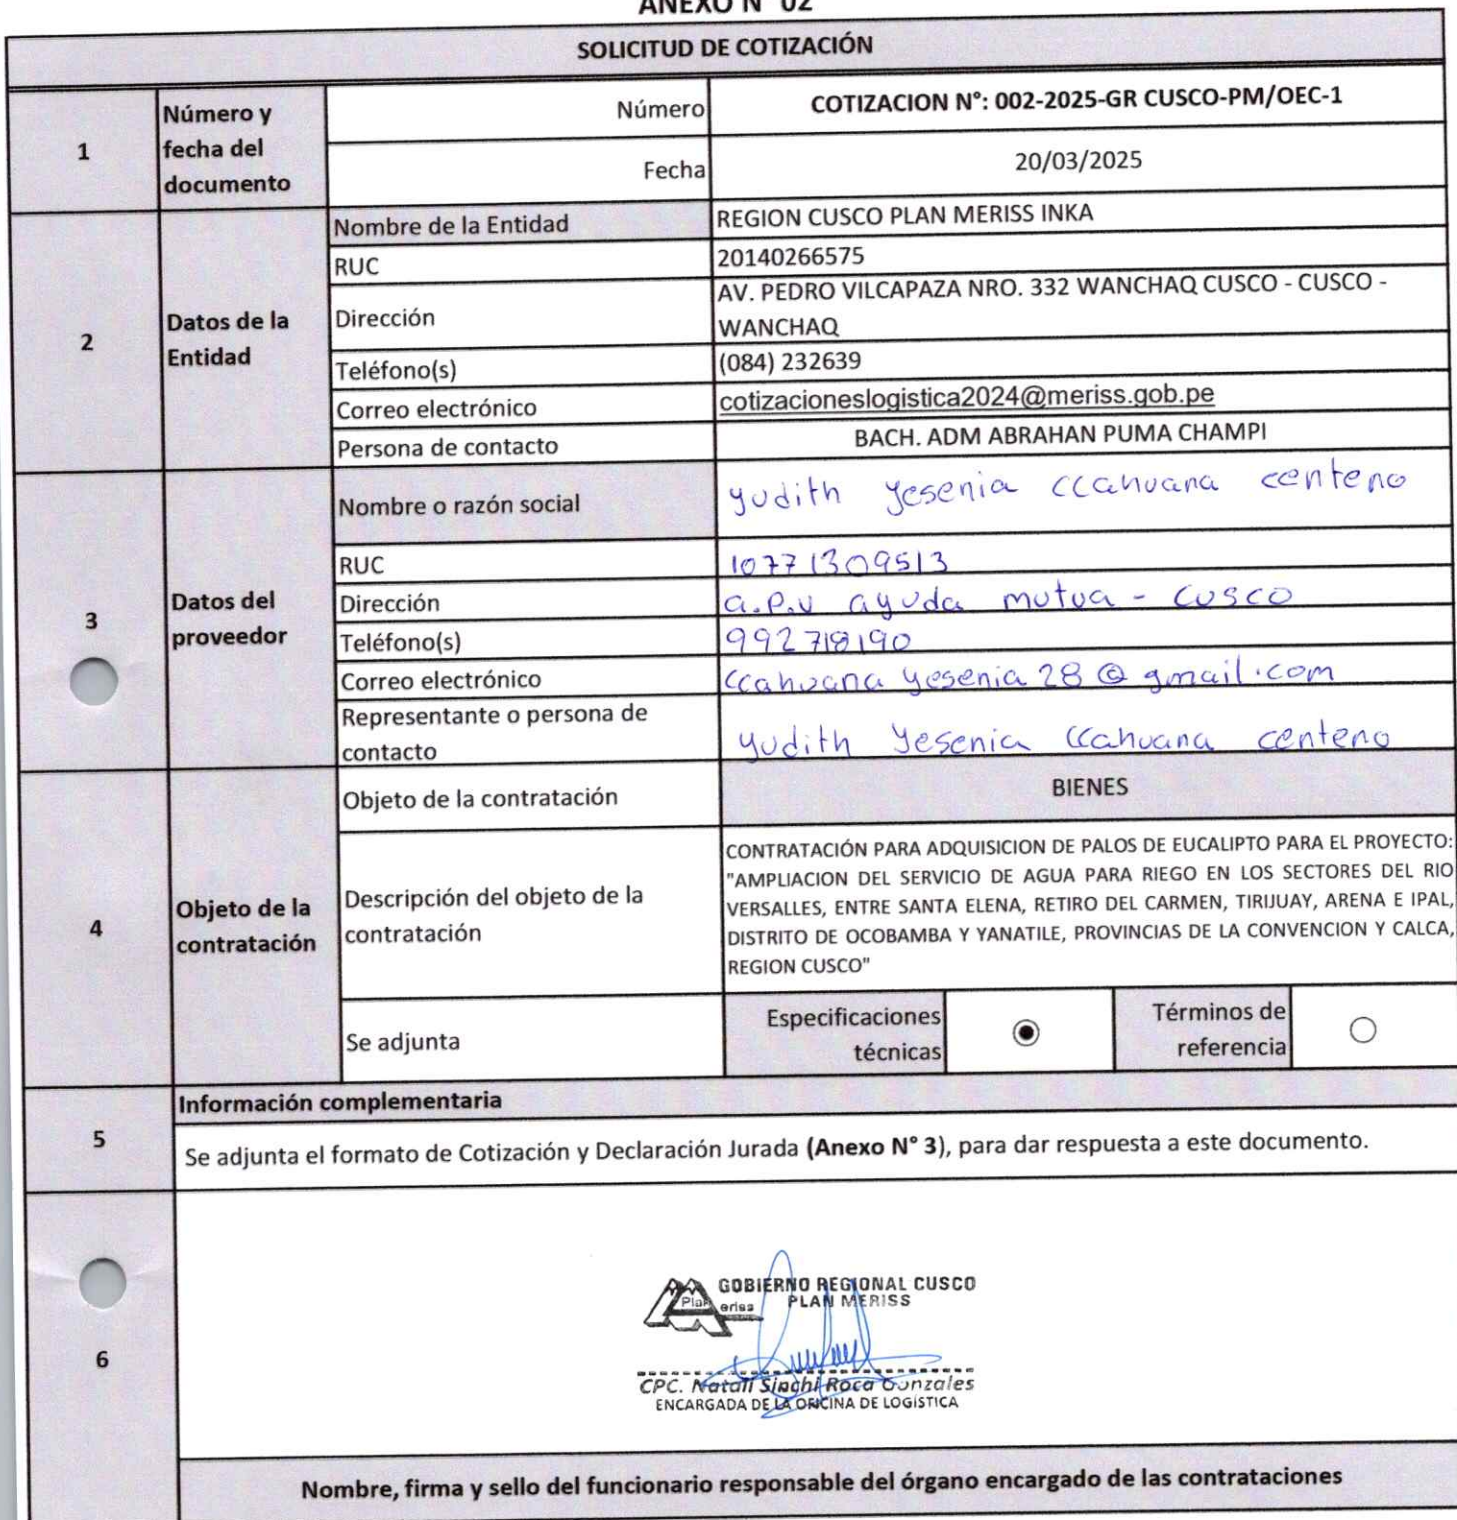 ANEXO N° 02
SOLICITUD DE COTIZACIÓN
1
Número y
fecha del
documento
Número
COTIZACION N°: 002-2025-GR CUSCO-PM/OEC-1
Fecha
20/03/2025
2
Datos de la
Entidad
Nombre de la Entidad
REGION CUSCO PLAN MERISS INKA
RUC
20140266575
Dirección
AV. PEDRO VILCAPAZA NRO. 332 WANCHAQ CUSCO - CUSCO -
WANCHAQ
Teléfono(s)
(084) 232639
Correo electrónico
cotizacioneslogistica2024@meriss.gob.pe
Persona de contacto
BACH. ADM ABRAHAN PUMA CHAMPI
3
Datos del
proveedor
Nombre o razón social
yudith yesenia ccahuana centeno
RUC
10771309513
Dirección
a.p.v ayuda mutua - cusco
Teléfono(s)
992718190
Correo electrónico
ccahuana yesenia 28 @ gmail.com
Representante o persona de
contacto
yudith yesenia ccahuana centeno
4
Objeto de la
contratación
Objeto de la contratación
BIENES
Descripción del objeto de la
contratación
CONTRATACIÓN PARA ADQUISICION DE PALOS DE EUCALIPTO PARA EL PROYECTO:
"AMPLIACION DEL SERVICIO DE AGUA PARA RIEGO EN LOS SECTORES DEL RIO
VERSALLES, ENTRE SANTA ELENA, RETIRO DEL CARMEN, TIRIJUAY, ARENA E IPAL,
DISTRITO DE OCOBAMBA Y YANATILE, PROVINCIAS DE LA CONVENCION Y CALCA,
REGION CUSCO"
Se adjunta
Especificaciones
técnicas
Términos de
referencia
5
Información complementaria
Se adjunta el formato de Cotización y Declaración Jurada (Anexo N° 3), para dar respuesta a este documento.
6
GOBIERNO REGIONAL CUSCO
PLAN MERISS
Plan
eriss
CPC. Natali Sinchi Roca Gonzales
ENCARGADA DE LA OFICINA DE LOGÍSTICA
Nombre, firma y sello del funcionario responsable del órgano encargado de las contrataciones